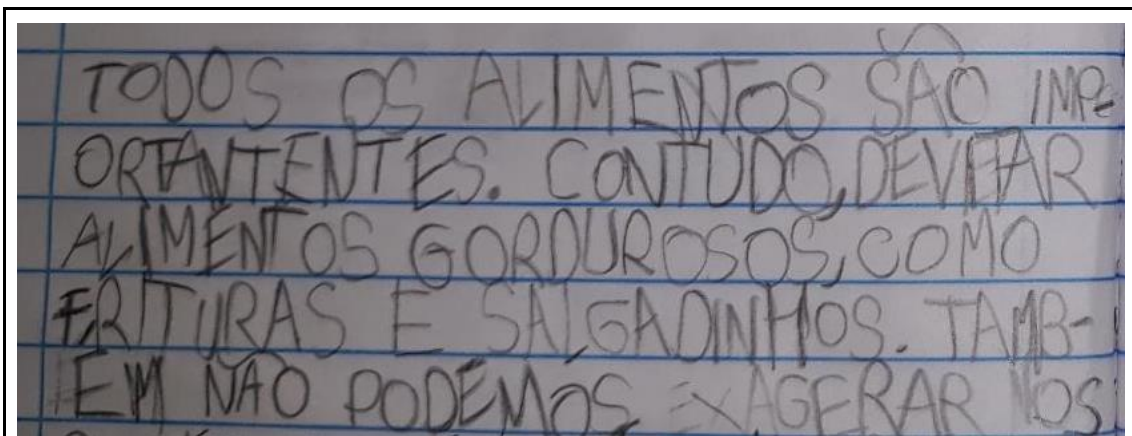 TODOS OS ALIMENTOS SÃO IMP-
ORTANTENTES. CONTUDO, DEVITAR
ALIMENTOS GORDUROSOS, COMO
FRITURAS E SALGADINHOS. TAMB-
EM NÃO PODEMOS EXAGERAR NOS